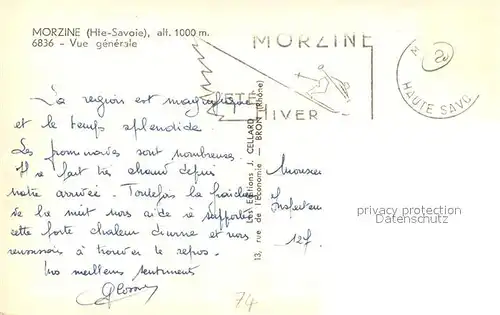 MORZINE (Hte-Savoie), alt. 1000 m.
6836 - Vue générale
MORZINE
ÉTÉ
HIVER
M
HAUTE SAVO
Les Editions J. CELLARD
13, rue de l'Économie — BRON (Rhône)
La region est magnifique
et le temps splendide.
Les promenades sont nombreuses.
Il fait très chaud depuis
notre arrivée. Toutefois la fraicheur
de la nuit nous aide à supporter
cette forte chaleur diurne et nous
réussissons à trouver le repos.
Vos meilleurs sentiments
Monsieur
Inspecteur
127
privacy protection
74